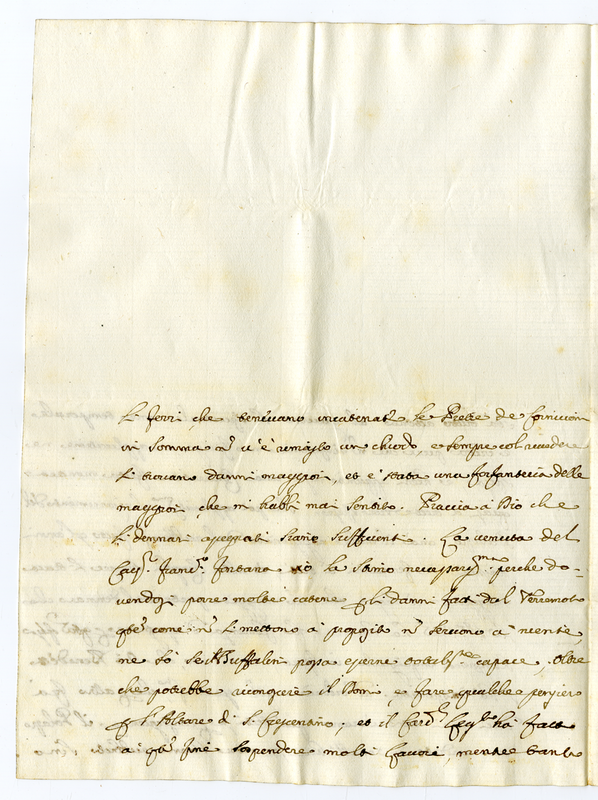 li ferri, che tenevano incatenate le Pietre de Cornicioni
in somma nō v'è rimasto un chiodo e sempre col rivedere
si trovano danni maggiori, et è stata una forfanteria delle
maggiori che si habbi mai sentito. Piaccia a Dio che
li dennari assegnati siano sufficienti. La venuta del
Cav.r Franc.o Fontana io la stimo necessariss.ma perche do-
vendosi porre molte catene p li danni fatti dal Terremoto
q.te come nō si mettono à proposito nō servono à niente,
ne sò se il Buffalini possa esserne totalm.te capace, oltre
che potrebbe riconoscere il Domo, e fare qualche pensiero
p l'Altare di S. Crescentino; et il Card.l ha fatto
a q.to fine sospendere molti lavori, mentre tanto